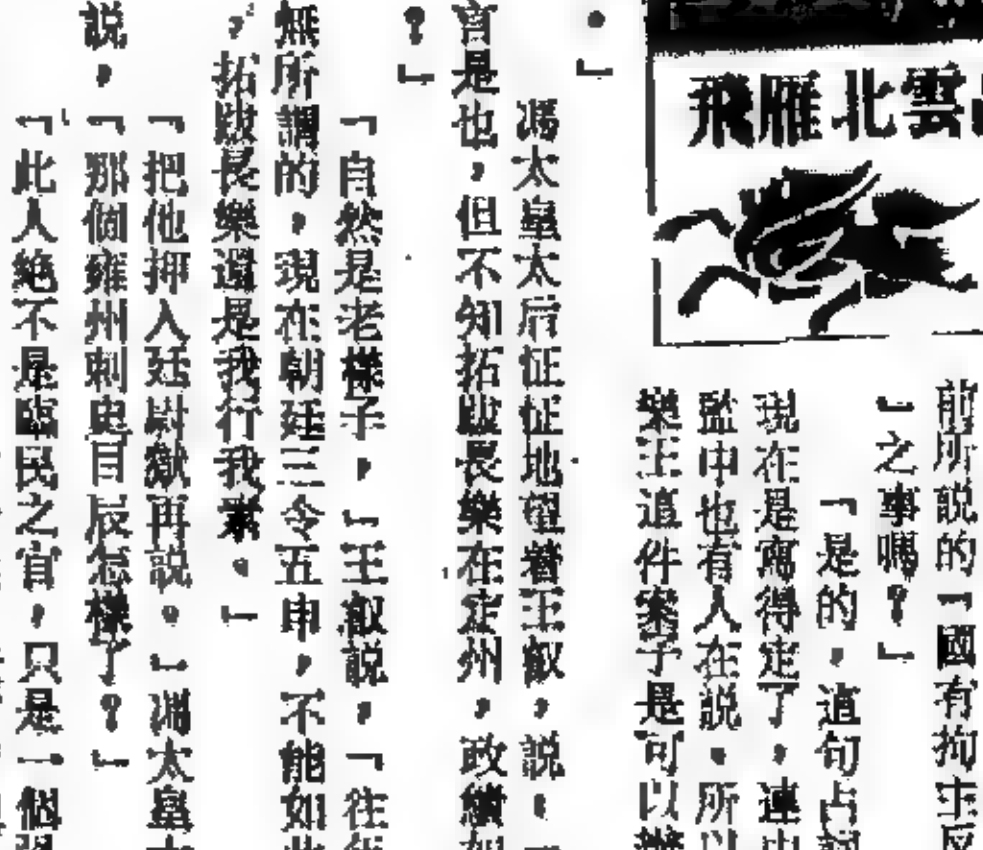 飛雁北雲
前所說的「國有拘主反
」之事嗎?」
「是的,這句占詞
現在是寫得定了,連中
監中也有人在說。所以
樂王這件案子是可以辦
。」
馮太皇太后怔怔地望着王叡,說:
官是也,但不知拓跋長樂在定州,政績如
?」
「自然是老樣子,」王叡說,「往
無所謂的,現在朝廷三令五申,不能如此
,拓跋長樂還是我行我素。」
「把他押入廷尉獄再說。」馮太皇
說,「那個雍州刺史目辰怎樣了?」
「此人絕不是臨民之官,只是一個